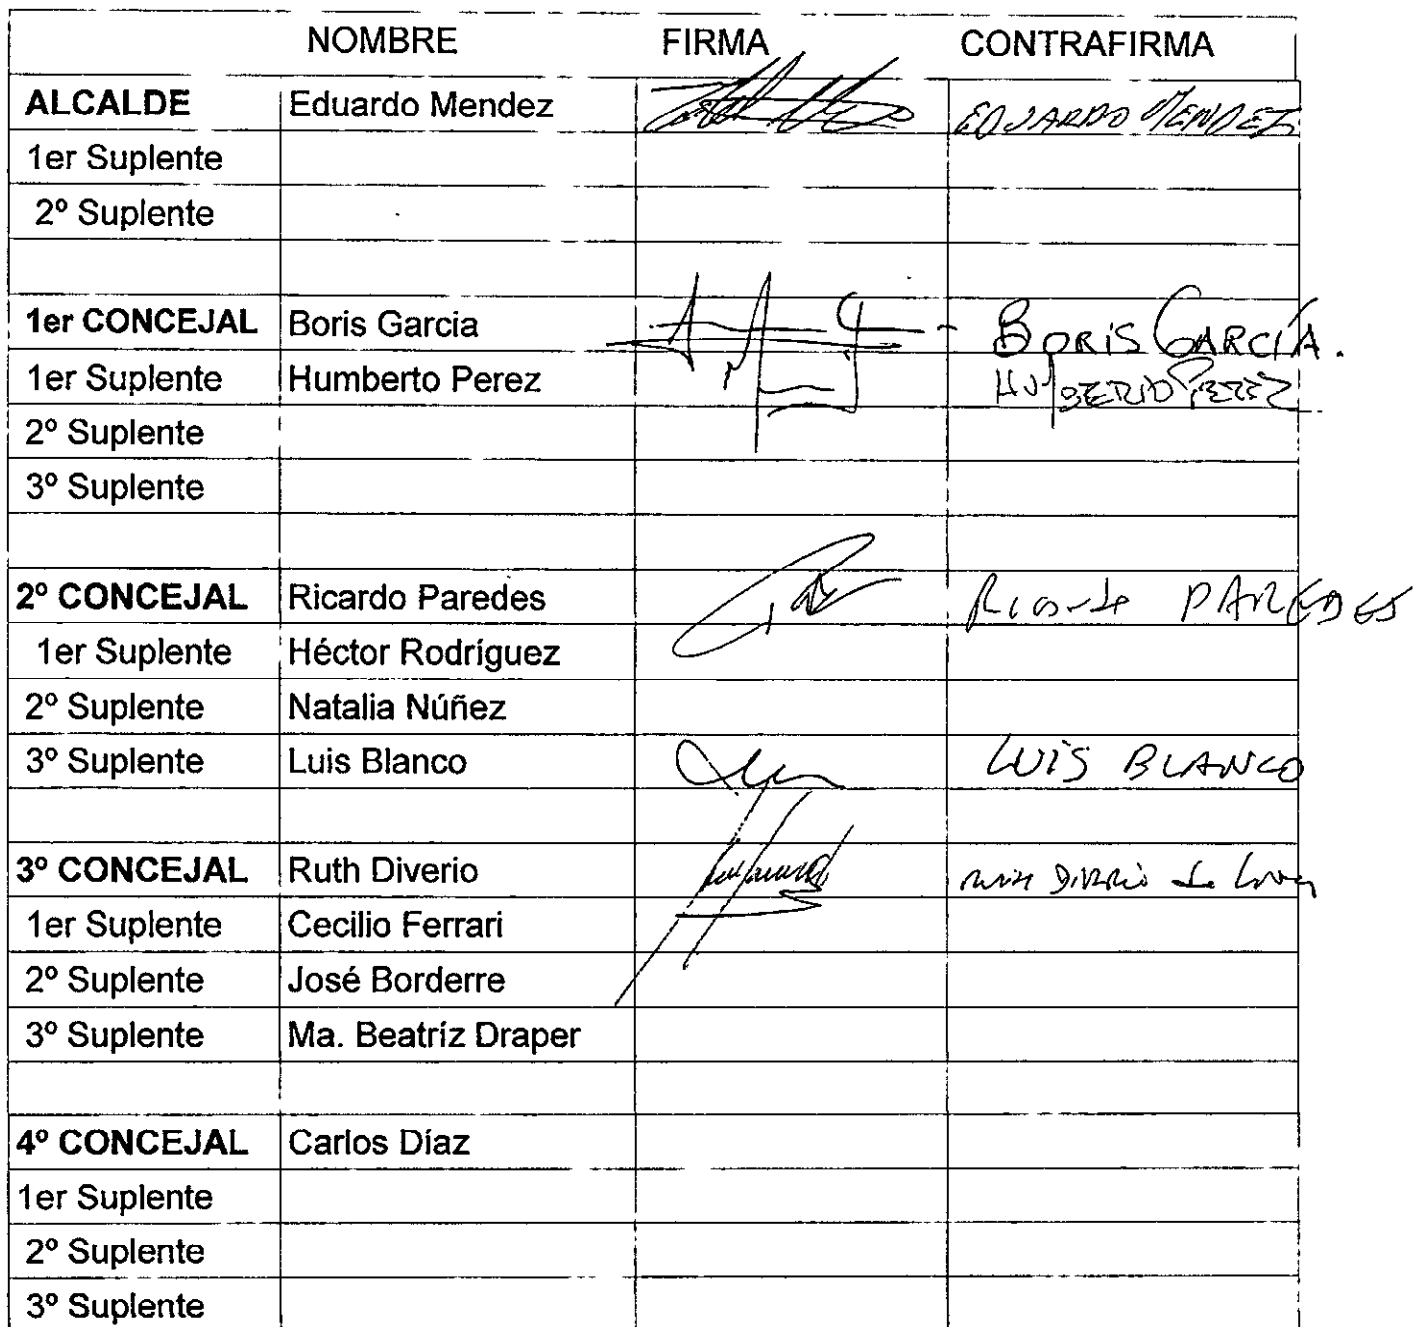 NOMBRE FIRMA CONTRAFIRMA
ALCALDE Eduardo Mendez EDUARDO MENDEZ
1er Suplente
2º Suplente
1er CONCEJAL Boris Garcia BORIS GARCÍA.
1er Suplente Humberto Perez HUMBERTO PEREZ
2º Suplente
3º Suplente
2º CONCEJAL Ricardo Paredes Ricardo PAREDES
1er Suplente Héctor Rodríguez
2º Suplente Natalia Núñez
3º Suplente Luis Blanco LUIS BLANCO
3º CONCEJAL Ruth Diverio Ruth Diverio de
1er Suplente Cecilio Ferrari
2º Suplente José Borderre
3º Suplente Ma. Beatríz Draper
4º CONCEJAL Carlos Díaz
1er Suplente
2º Suplente
3º Suplente